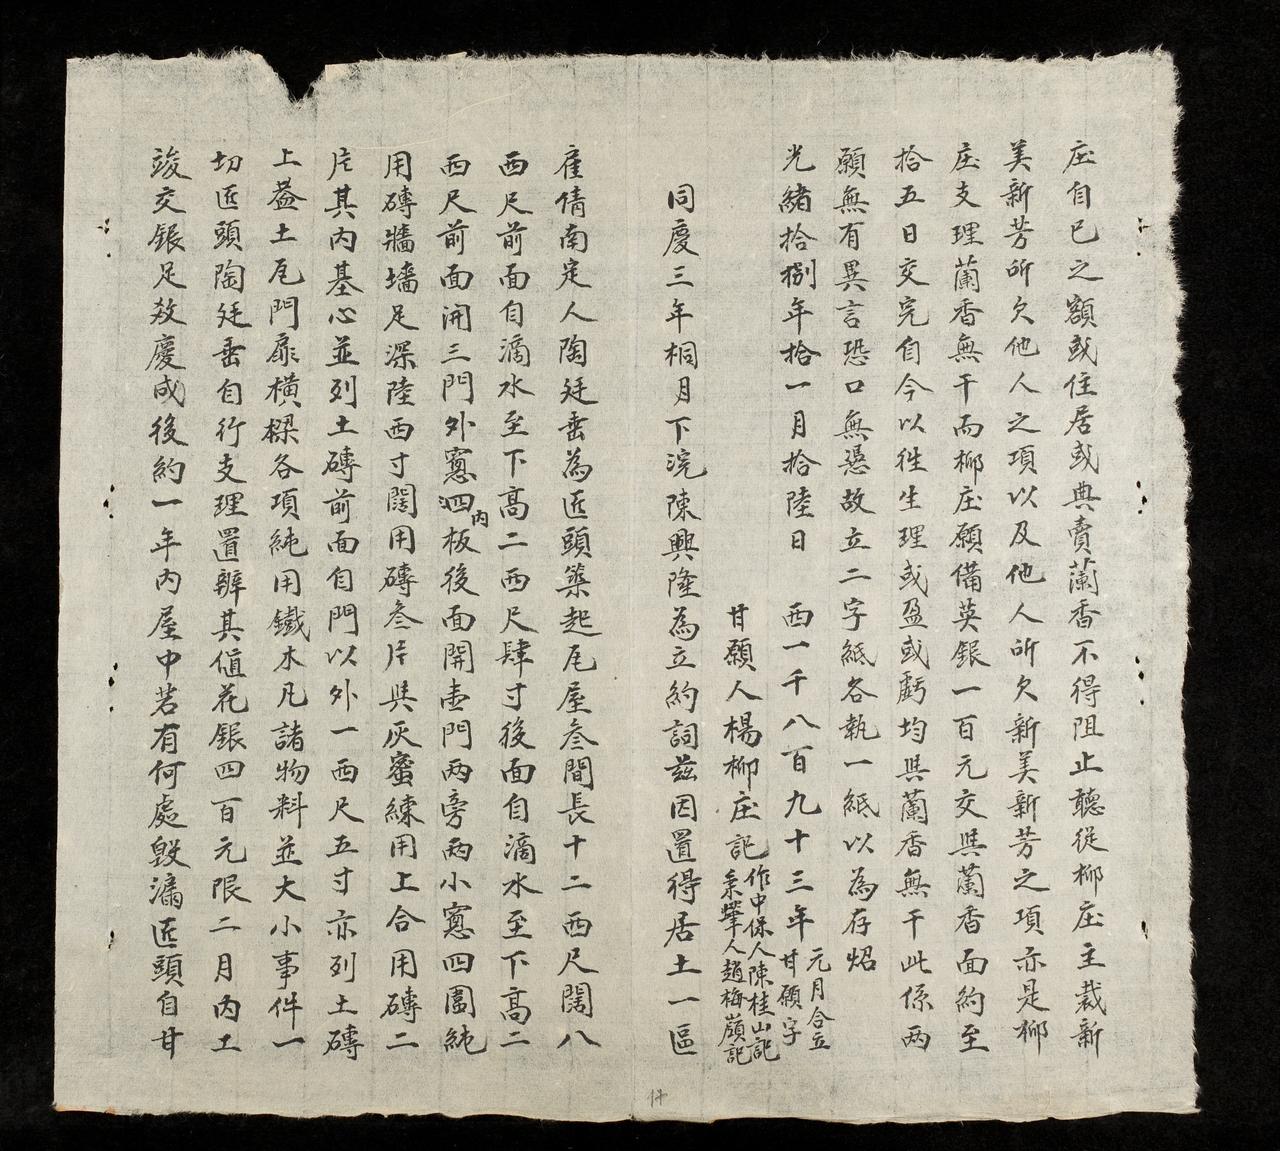 庄自已之額或住居或典賣蘭香不得阻止聽從柳庄主裁新
美新芳所欠他人之項以及他人所欠新美新芳之項亦是柳
庄支理蘭香無干而柳庄願備英銀一百元交與蘭香面約至
拾五日交完自今以徃生理或盈或虧均與蘭香無干此係两
願無有異言恐口無憑故立二字紙各執一紙以為存炤
光緒拾捌年拾一月拾陸日 西一千八百九十三年元月合立甘願字
甘願人楊柳庄記 作中保人陳桂山記 秉筆人趙梅嶺記
同慶三年桐月下浣陳興隆為立約詞茲因置得居土一區
雇倩南定人陶廷垂為匠頭築起瓦屋叁間長十二西尺闊八
西尺前面自滴水至下高二西尺肆寸後面自滴水至下高二
西尺前面開三門外窻四内板後面開壹門两旁两小窻四圍純
用磚牆墻足深陸西寸闊用磚叁片與灰蜜練用上合用磚二
片其内基心並列土磚前面自門以外一西尺五寸亦列土磚
上蓋土瓦門扉橫樑各項純用鐵木凡諸物料並大小事件一
切匠頭陶廷垂自行支理置辨其値花銀四百元限二月内工
竣交銀足效慶成後約一年内屋中若有何處毀漏匠頭自甘